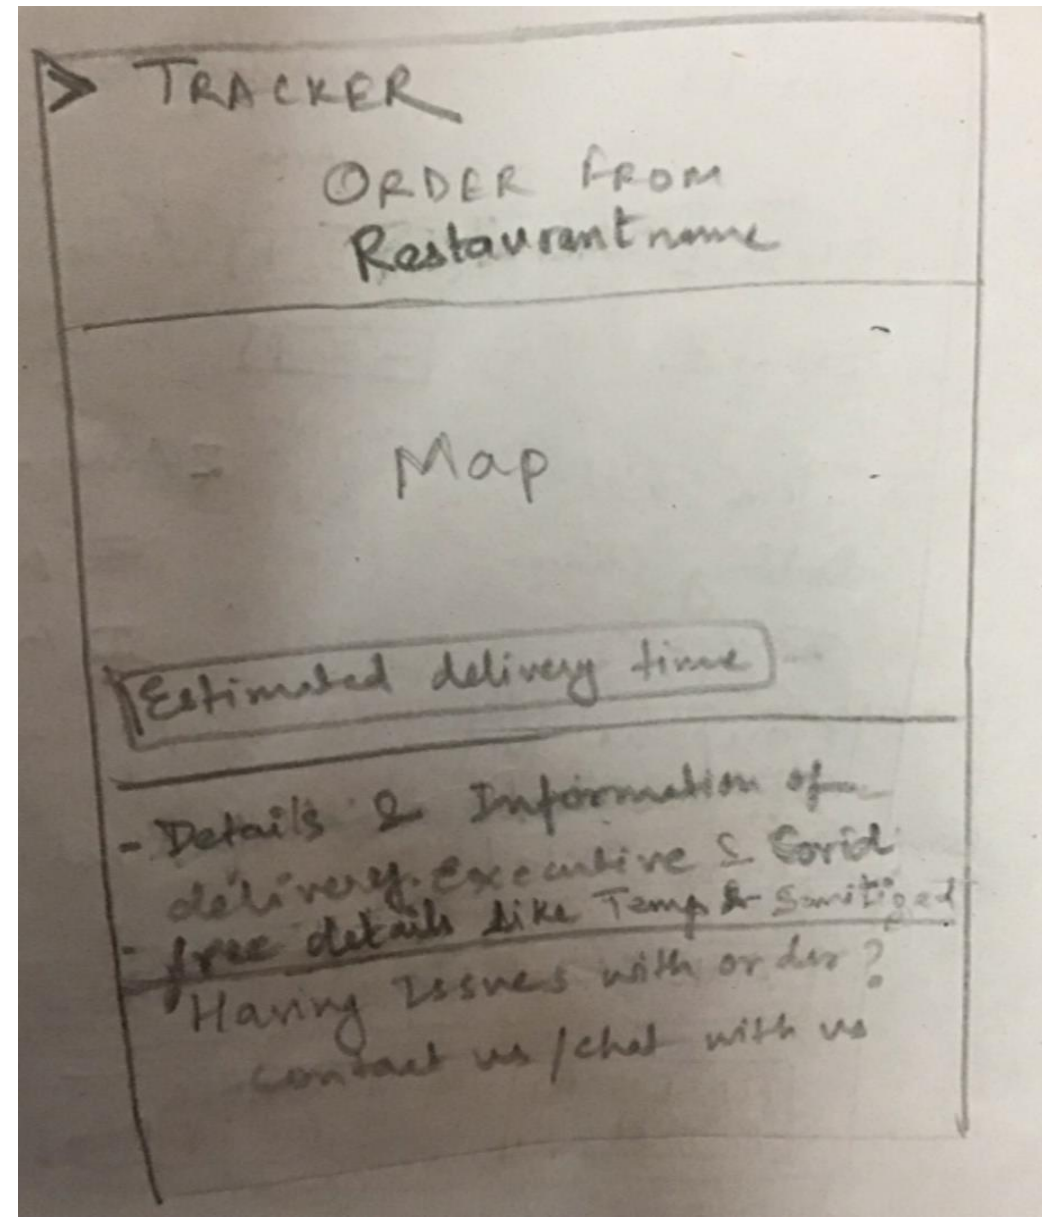 > TRACKER
ORDER FROM
Restaurant name
Map
Estimated delivery time
- Details & Information of
delivery executive & Covid
- free details like Temp & Sanitized
Having Issues with order?
contact us / chat with us